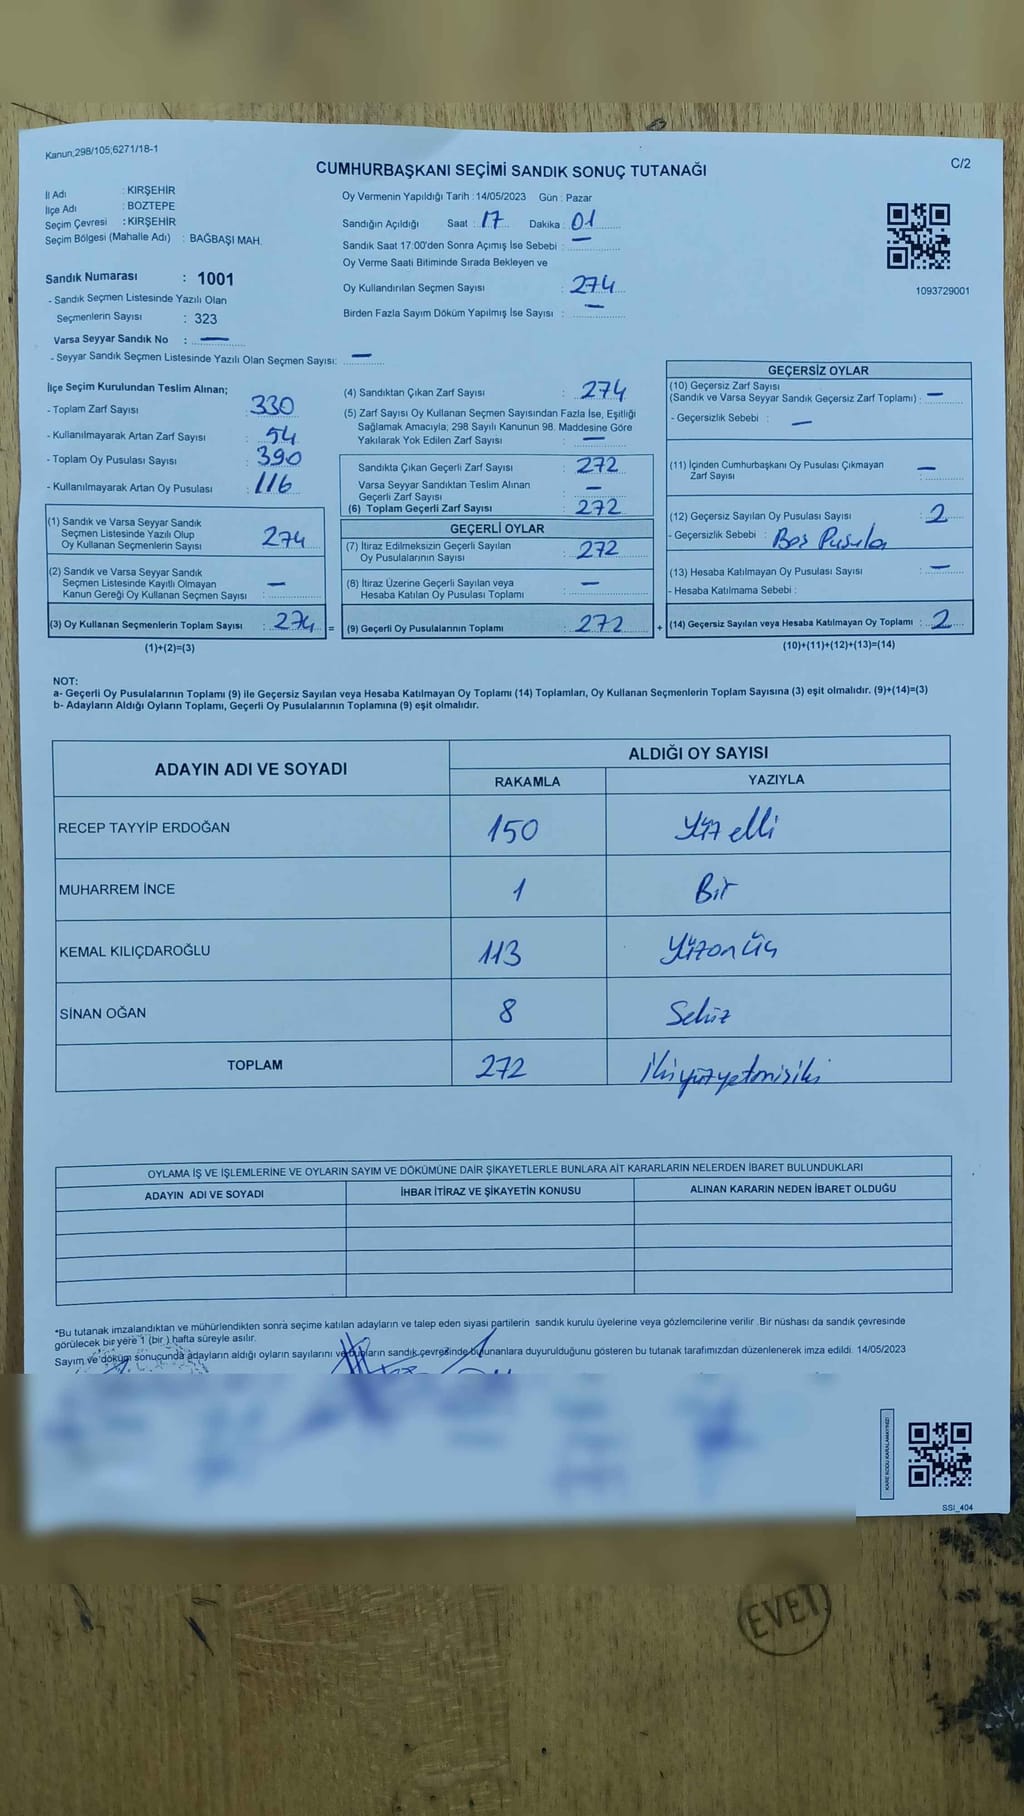 Kanun;298/105;6271/18-1
C/2
CUMHURBAŞKANI SEÇİMİ SANDIK SONUÇ TUTANAĞI
İl Adı : KIRŞEHİR
İlçe Adı : BOZTEPE
Seçim Çevresi : KIRŞEHİR
Seçim Bölgesi (Mahalle Adı) : BAĞBAŞI MAH.
Sandık Numarası : 1001
- Sandık Seçmen Listesinde Yazılı Olan
Seçmenlerin Sayısı : 323
Varsa Seyyar Sandık No : —
- Seyyar Sandık Seçmen Listesinde Yazılı Olan Seçmen Sayısı: —
Oy Vermenin Yapıldığı Tarih : 14/05/2023 Gün : Pazar
Sandığın Açıldığı Saat : 17 Dakika : 01
Sandık Saat 17:00'den Sonra Açımış İse Sebebi : —
Oy Verme Saati Bitiminde Sırada Bekleyen ve
Oy Kullandırılan Seçmen Sayısı : 274
Birden Fazla Sayım Döküm Yapılmış İse Sayısı : —
1093729001
İlçe Seçim Kurulundan Teslim Alınan;
- Toplam Zarf Sayısı : 330
- Kullanılmayarak Artan Zarf Sayısı : 54
- Toplam Oy Pusulası Sayısı : 390
- Kullanılmayarak Artan Oy Pusulası : 116
(1) Sandık ve Varsa Seyyar Sandık
Seçmen Listesinde Yazılı Olup
Oy Kullanan Seçmenlerin Sayısı : 274
(2) Sandık ve Varsa Seyyar Sandık
Seçmen Listesinde Kayıtlı Olmayan
Kanun Gereği Oy Kullanan Seçmen Sayısı : —
(3) Oy Kullanan Seçmenlerin Toplam Sayısı : 274 =
(1)+(2)=(3)
(4) Sandıktan Çıkan Zarf Sayısı : 274
(5) Zarf Sayısı Oy Kullanan Seçmen Sayısından Fazla İse, Eşitliği
Sağlamak Amacıyla; 298 Sayılı Kanunun 98. Maddesine Göre
Yakılarak Yok Edilen Zarf Sayısı : —
Sandıkta Çıkan Geçerli Zarf Sayısı : 272
Varsa Seyyar Sandıktan Teslim Alınan
Geçerli Zarf Sayısı : —
(6) Toplam Geçerli Zarf Sayısı : 272
GEÇERLİ OYLAR
(7) İtiraz Edilmeksizin Geçerli Sayılan
Oy Pusulalarının Sayısı : 272
(8) İtiraz Üzerine Geçerli Sayılan veya
Hesaba Katılan Oy Pusulası Toplamı : —
(9) Geçerli Oy Pusulalarının Toplamı : 272 +
GEÇERSİZ OYLAR
(10) Geçersiz Zarf Sayısı
(Sandık ve Varsa Seyyar Sandık Geçersiz Zarf Toplamı) : —
- Geçersizlik Sebebi : —
(11) İçinden Cumhurbaşkanı Oy Pusulası Çıkmayan
Zarf Sayısı : —
(12) Geçersiz Sayılan Oy Pusulası Sayısı : 2
- Geçersizlik Sebebi : Boş Pusula
(13) Hesaba Katılmayan Oy Pusulası Sayısı : —
- Hesaba Katılmama Sebebi :
(14) Geçersiz Sayılan veya Hesaba Katılmayan Oy Toplamı : 2
(10)+(11)+(12)+(13)=(14)
NOT:
a- Geçerli Oy Pusulalarının Toplamı (9) ile Geçersiz Sayılan veya Hesaba Katılmayan Oy Toplamı (14) Toplamları, Oy Kullanan Seçmenlerin Toplam Sayısına (3) eşit olmalıdır. (9)+(14)=(3)
b- Adayların Aldığı Oyların Toplamı, Geçerli Oy Pusulalarının Toplamına (9) eşit olmalıdır.
ADAYIN ADI VE SOYADI ALDIĞI OY SAYISI
RAKAMLA YAZIYLA
RECEP TAYYİP ERDOĞAN 150 Yüz elli
MUHARREM İNCE 1 Bir
KEMAL KILIÇDAROĞLU 113 Yüzonüç
SİNAN OĞAN 8 Sekiz
TOPLAM 272 İkiyüzyetmişiki
OYLAMA İŞ VE İŞLEMLERİNE VE OYLARIN SAYIM VE DÖKÜMÜNE DAİR ŞİKAYETLERLE BUNLARA AİT KARARLARIN NELERDEN İBARET BULUNDUKLARI
ADAYIN ADI VE SOYADI İHBAR İTİRAZ VE ŞİKAYETİN KONUSU ALINAN KARARIN NEDEN İBARET OLDUĞU
*Bu tutanak imzalandıktan ve mühürlendikten sonra seçime katılan adayların ve talep eden siyasi partilerin sandık kurulu üyelerine veya gözlemcilerine verilir .Bir nüshası da sandık çevresinde
görülecek bir yere 1 (bir ) hafta süreyle asılır.
Sayım ve döküm sonucunda adayların aldığı oyların sayılarını ve bunların sandık çevresinde bulunanlara duyurulduğunu gösteren bu tutanak tarafımızdan düzenlenerek imza edildi. 14/05/2023
KARE KODU KARALAMAYINIZ!
SSI_404
EVET